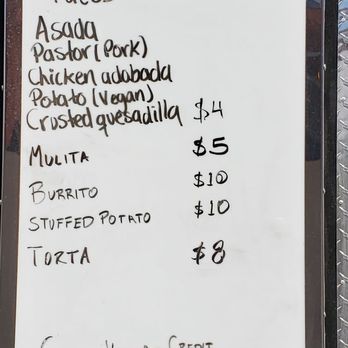 Asada
Pastor (Pork)
Chicken adobada
Potato (Vegan)
Crusted quesadilla $4
MULITA $5
BURRITO $10
STUFFED POTATO $10
TORTA $8
CREDIT